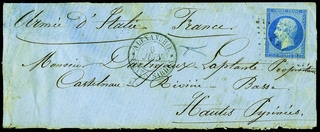 Armée d'Italie - France
ALEXANDRIE
Monsieur Dartigaux Laplante Propriétaire
Castelnau Rivière-Basse
Hautes Pyrénées